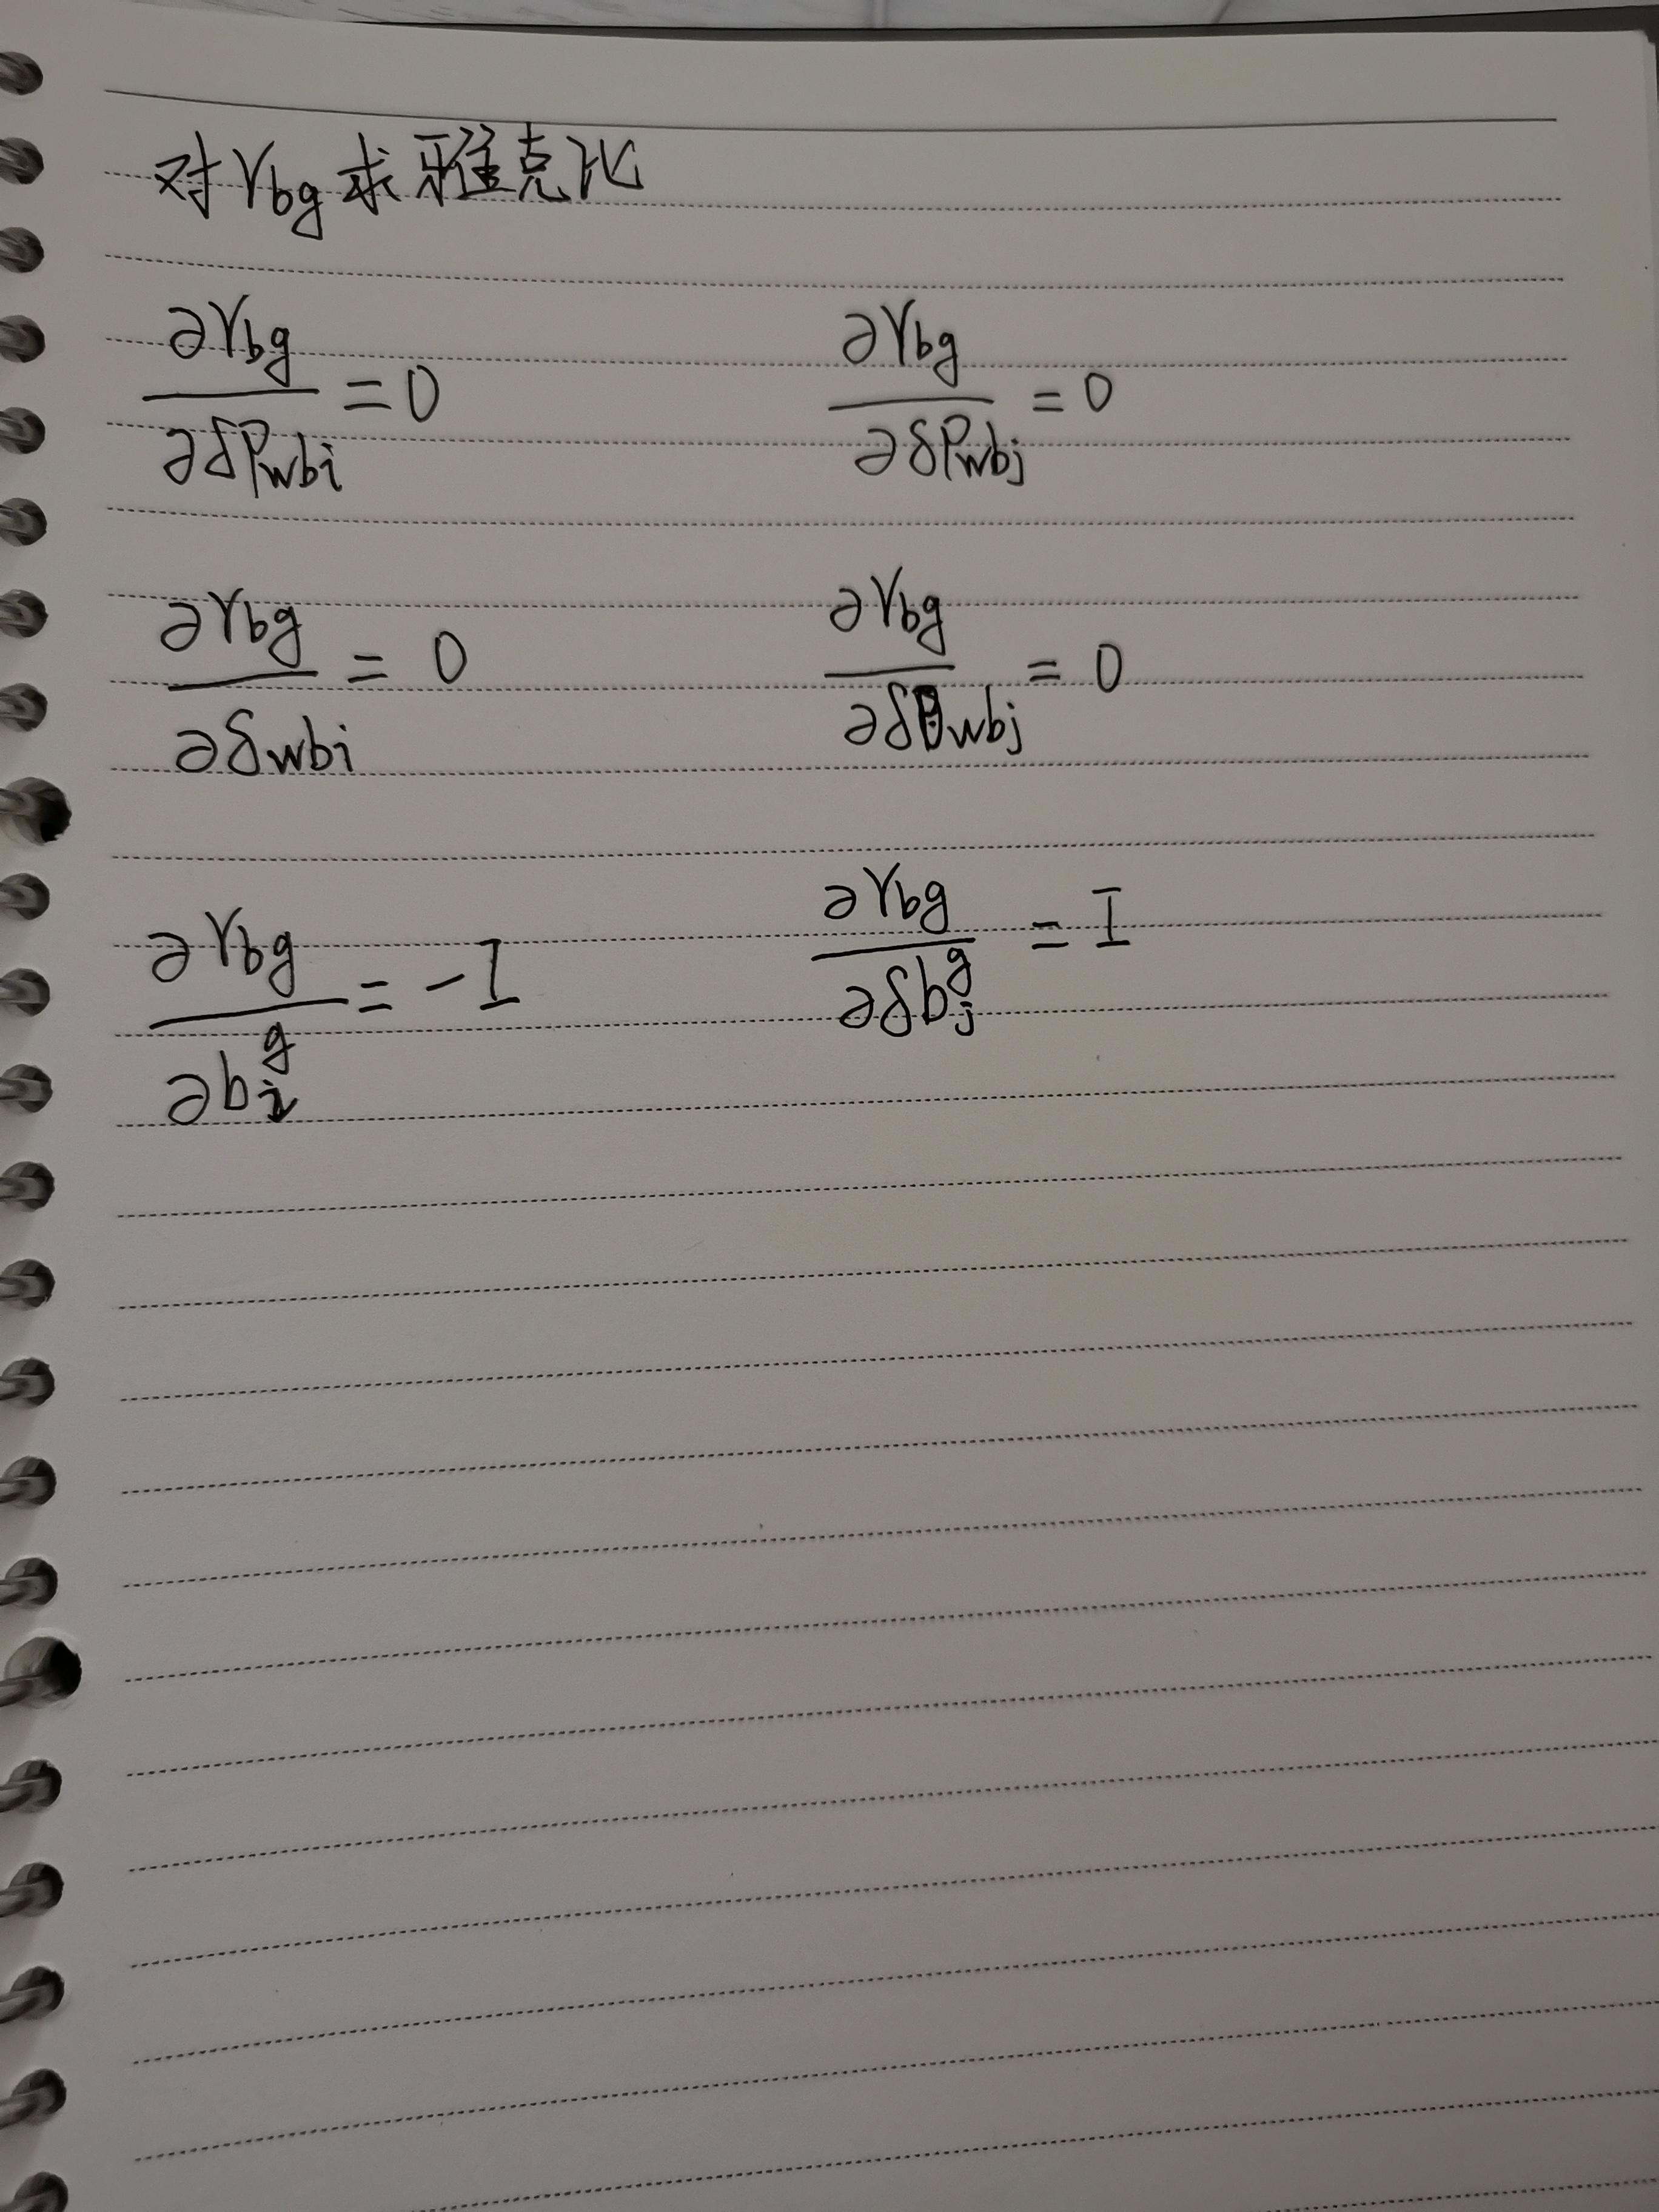 对 r_{bg} 求雅克比
\frac{∂r_{bg}}{∂δP_{wbi}} = 0    \frac{∂r_{bg}}{∂δP_{wbj}} = 0
\frac{∂r_{bg}}{∂δ_{wbi}} = 0    \frac{∂r_{bg}}{∂δθ_{wbj}} = 0
\frac{∂r_{bg}}{∂b_i^g} = -I    \frac{∂r_{bg}}{∂δb_j^g} = I